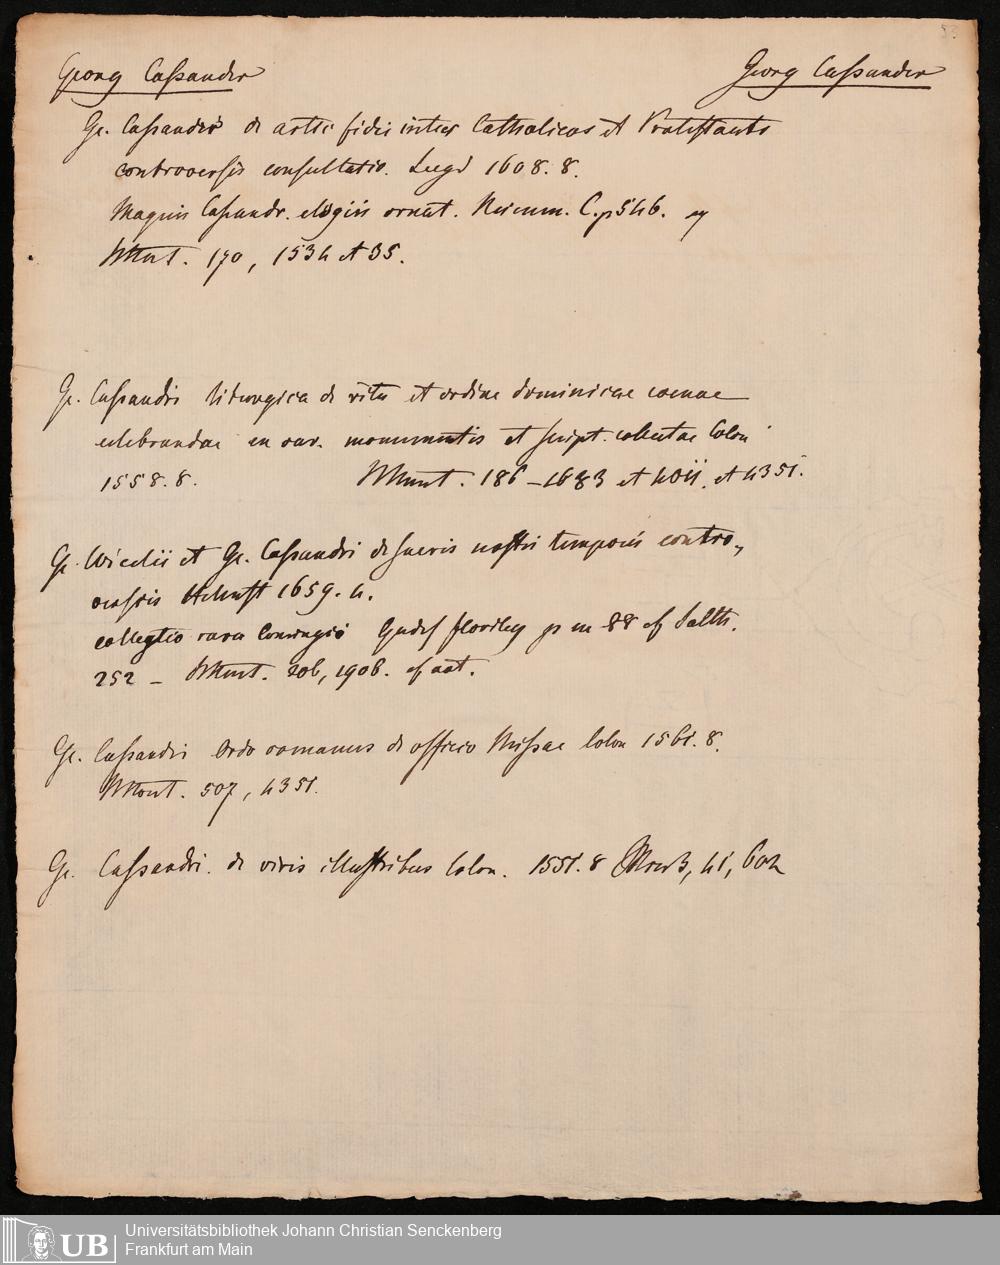 53
Georg Cassander Georg Cassander
Ge. Cassandri de artic fidei inter Catholicos et Protestants
controversis consultatio. Lugd 1608. 8.
Magnis Cassandr. elogiis ornat. p 546.
170, 1534 et 35.
Ge. Cassandri liturgica de ritu et ordine dominicae coenae
celebrandae ex var. monumentis et script. collectae Colon
1558. 8. 186 – 1683 et 4011. et 4351.
Ge. Wicelii et Ge. Cassandri de sacris nostri temporis contro-
versiis Helmst 1659. 4.
collectio rara Conringio p m 88 cf Salth.
252 – 206, 1906. cf cat.
Ge. Cassandri Ordo romanus de officio Missae Colon 1561. 8.
507, 4351.
Ge. Cassandri de viris illustribus Colon. 1551. 8 41, 604
Universitätsbibliothek Johann Christian Senckenberg
Frankfurt am Main
UB